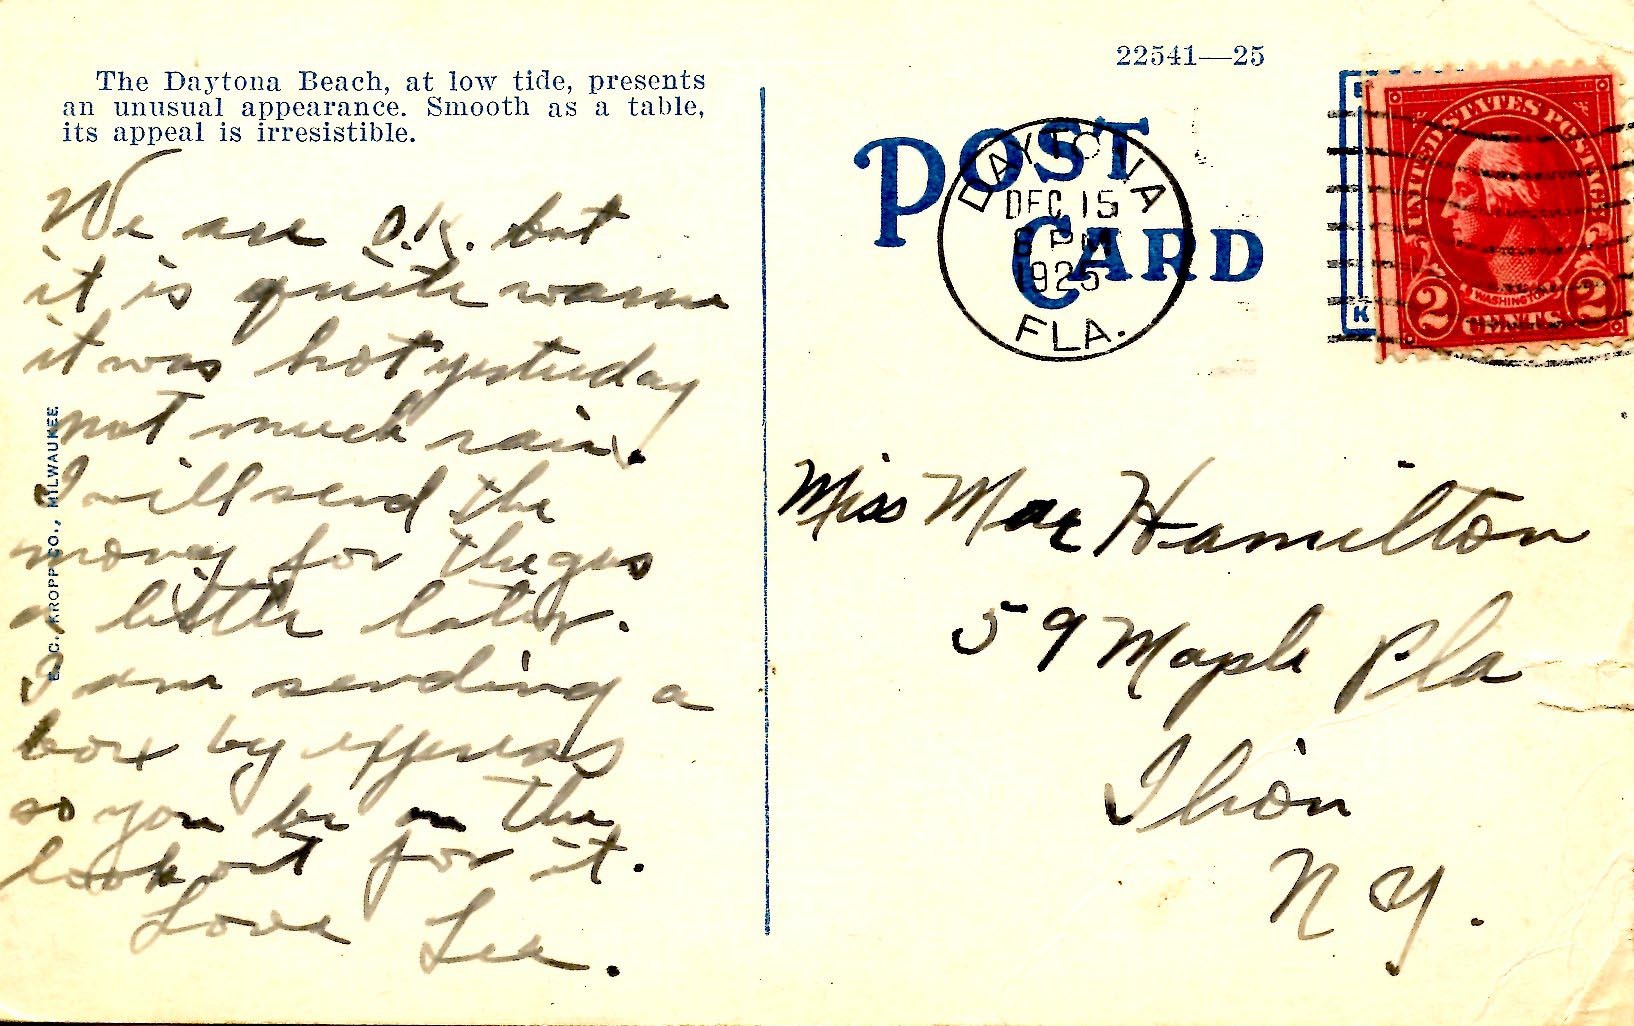 The Daytona Beach, at low tide, presents
an unusual appearance. Smooth as a table,
its appeal is irresistible.
We are O.K. but
it is quite warm
it was hot yesterday
not much rain.
I will send the
money for the gas
a little later.
I am sending a
box by express
so you be on the
look out for it.
Love Lee.
E. C. KROPP CO., MILWAUKEE.
22541—25
POST
CARD
DAYTONA
DEC 15
6 PM
1925
FLA.
K
UNITED STATES POSTAGE
WASHINGTON
2 CENTS 2
Miss Mae Hamilton
59 Maple Pla
Ilion
N Y.